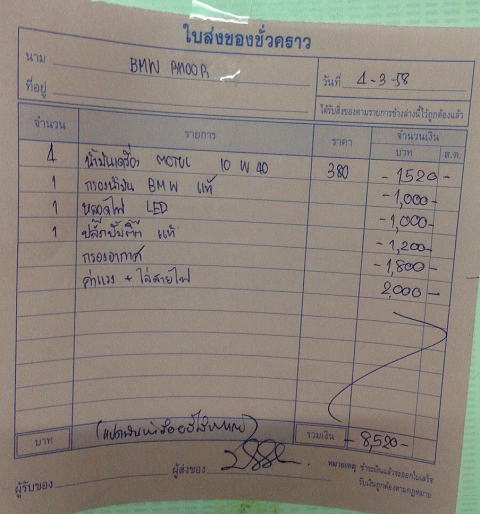 ใบส่งของชั่วคราว
นาม BMW
วันที่ 4-3-58
ที่อยู่
ได้รับสิ่งของตามรายการข้างล่างนี้ไว้ถูกต้องแล้ว
จำนวน รายการ ราคา จำนวนเงิน
บาท ส.ต.
4 น้ำมันเครื่อง MOTUL 10 W 40 380 -1520-
1 กรองน้ำมัน BMW แท้ -1,000-
1 หลอดไฟ LED -1,000-
1 ปลั๊กปั๊มติ๊ก แท้ -1,200-
กรองอากาศ -1,800-
ค่าแรง + ไล่สายไฟ 2,000-
บาท (แปดพันห้าร้อยยี่สิบบาท) รวมเงิน -8,520-
ผู้รับของ ผู้ส่งของ
หมายเหตุ ชำระเงินแล้วจะออกใบเสร็จ
รับเงินถูกต้องตามกฎหมาย